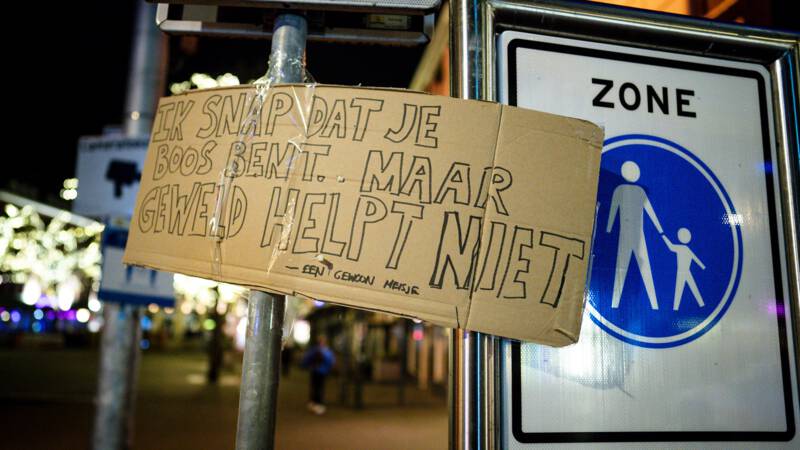 IK SNAP DAT JE
BOOS BENT. MAAR
GEWELD HELPT NIET
— EEN GEWOON MEISJE
ZONE